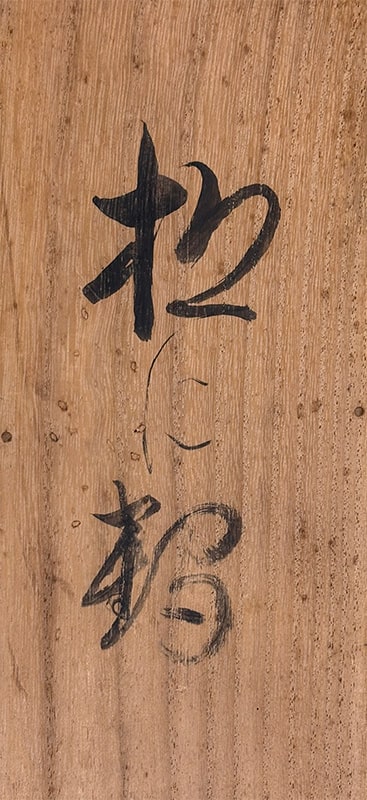 松に鶴